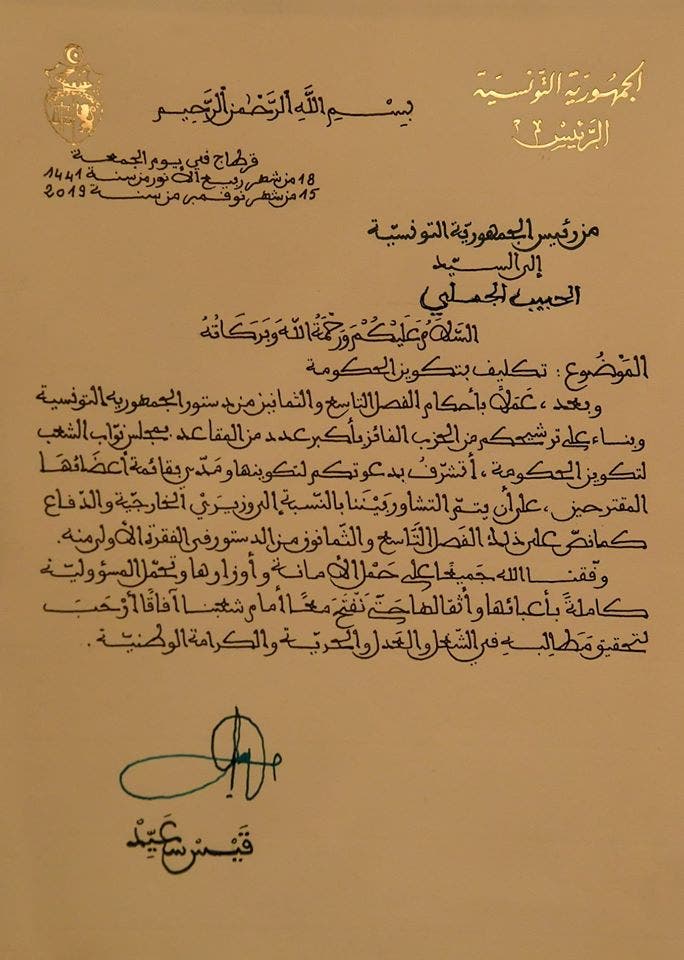 الجمهورية التونسية
الرئيس
بِسْمِ اللَّهِ الرَّحْمٰنِ الرَّحِيمِ
قرطاج في يوم الجمعة
18 من شهر ربيع الأنور من سنة 1441
15 من شهر نوفمبر من سنة 2019
من رئيس الجمهوريّة التونسيّة
إلى السيّد
الحبيب الجملي
السَّلَامُ عَلَيْكُمْ وَرَحْمَةُ اللَّهِ وَبَرَكَاتُهُ
المَوْضُوع : تكليف بتكوين الحكومة
وبعد، عَمَلًا بأحكام الفصل التاسع والثمانين من دستور الجمهورية التونسية
وبناء على ترشيحكم من الحزب الفائز بأكبر عدد من المقاعد بمجلس نوّاب الشعب
لتكوين الحكومة، أتشرّف بدعوتكم لتكوينها ومَدّي بقائمة أعضائها
المقترحين، على أن يتمّ التشاور بَيْننا بالنّسبة إلى وزيرَيْ الخارجيّة والدّفاع
كما نصّ على ذلك الفصل التّاسع والثّمانون من الدستور في الفقرة الأولى منه.
وفّقنا الله جَميعًا على حَمْل الأمانة وأوزارها وتحمّل المسؤوليّة
كاملةً بأعبائها وأثقالها حَتّى نَفْتَحَ مَعًا أمام شعبنا آفاقًا أرْحَبَ
لتحقيق مَطَالبه في الشّغل والعَدل والحريّة والكرامة الوطنيّة.
قَيْسْ سَعَيِّدْ